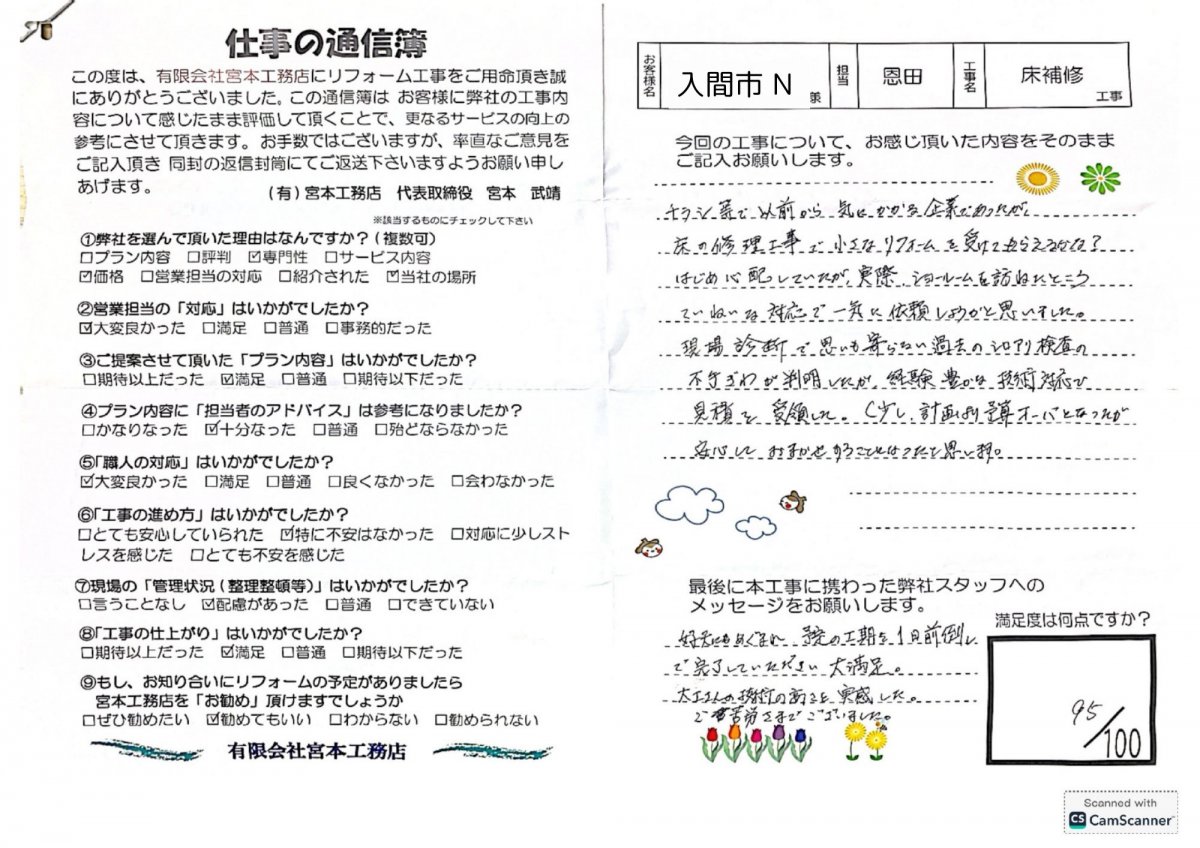 仕事の通信簿
この度は、有限会社宮本工務店にリフォーム工事をご用命頂き誠
にありがとうございました。この通信簿は お客様に弊社の工事内
容について感じたまま評価して頂くことで、更なるサービスの向上の
参考にさせて頂きます。お手数ではございますが、率直なご意見を
ご記入頂き 同封の返信封筒にてご返送下さいますようお願い申し
あげます。
(有)宮本工務店 代表取締役 宮本 武靖
※該当するものにチェックして下さい
①弊社を選んで頂いた理由はなんですか?(複数可)
□プラン内容 □評判 ☑専門性 □サービス内容
☑価格 □営業担当の対応 □紹介された ☑当社の場所
②営業担当の「対応」はいかがでしたか?
☑大変良かった □満足 □普通 □事務的だった
③ご提案させて頂いた「プラン内容」はいかがでしたか?
□期待以上だった ☑満足 □普通 □期待以下だった
④プラン内容に「担当者のアドバイス」は参考になりましたか?
□かなりなった ☑十分なった □普通 □殆どならなかった
⑤「職人の対応」はいかがでしたか?
☑大変良かった □満足 □普通 □良くなかった □会わなかった
⑥「工事の進め方」はいかがでしたか?
□とても安心していられた ☑特に不安はなかった □対応に少しスト
レスを感じた □とても不安を感じた
⑦現場の「管理状況(整理整頓等)」はいかがでしたか?
□言うことなし ☑配慮があった □普通 □できていない
⑧「工事の仕上がり」はいかがでしたか?
□期待以上だった ☑満足 □普通 □期待以下だった
⑨もし、お知り合いにリフォームの予定がありましたら
宮本工務店を「お勧め」頂けますでしょうか
□ぜひ勧めたい ☑勧めてもいい □わからない □勧められない
有限会社宮本工務店
お客様名 入間市 N 様 担当 恩田 工事名 床補修 工事
今回の工事について、お感じ頂いた内容をそのまま
ご記入お願いします。
チラシ等で以前から気にかかる企業であったが、
床の修理工事で小さなリフォームを受けてもらえるかな?
はじめ心配していたが、実際、ショールームを訪ねたところ
ていねいな対応で一気に依頼しようかと思いました。
現場診断で思いも寄らない過去のシロアリ検査の
不手ぎわが判明したが、経験豊かな技術対応び
見積を受領した。(少し、計画より予算オーバとなったが
安心しておまかせすることになったと思います。
最後に本工事に携わった弊社スタッフへの
メッセージをお願いします。
好天にもめぐまれ、予定の工期を1日前倒し
で完了していただき大満足。
大工さんの技術の高さを実感した。
ご苦労さまでございました。
満足度は何点ですか?
95/100
Scanned with
CS CamScanner